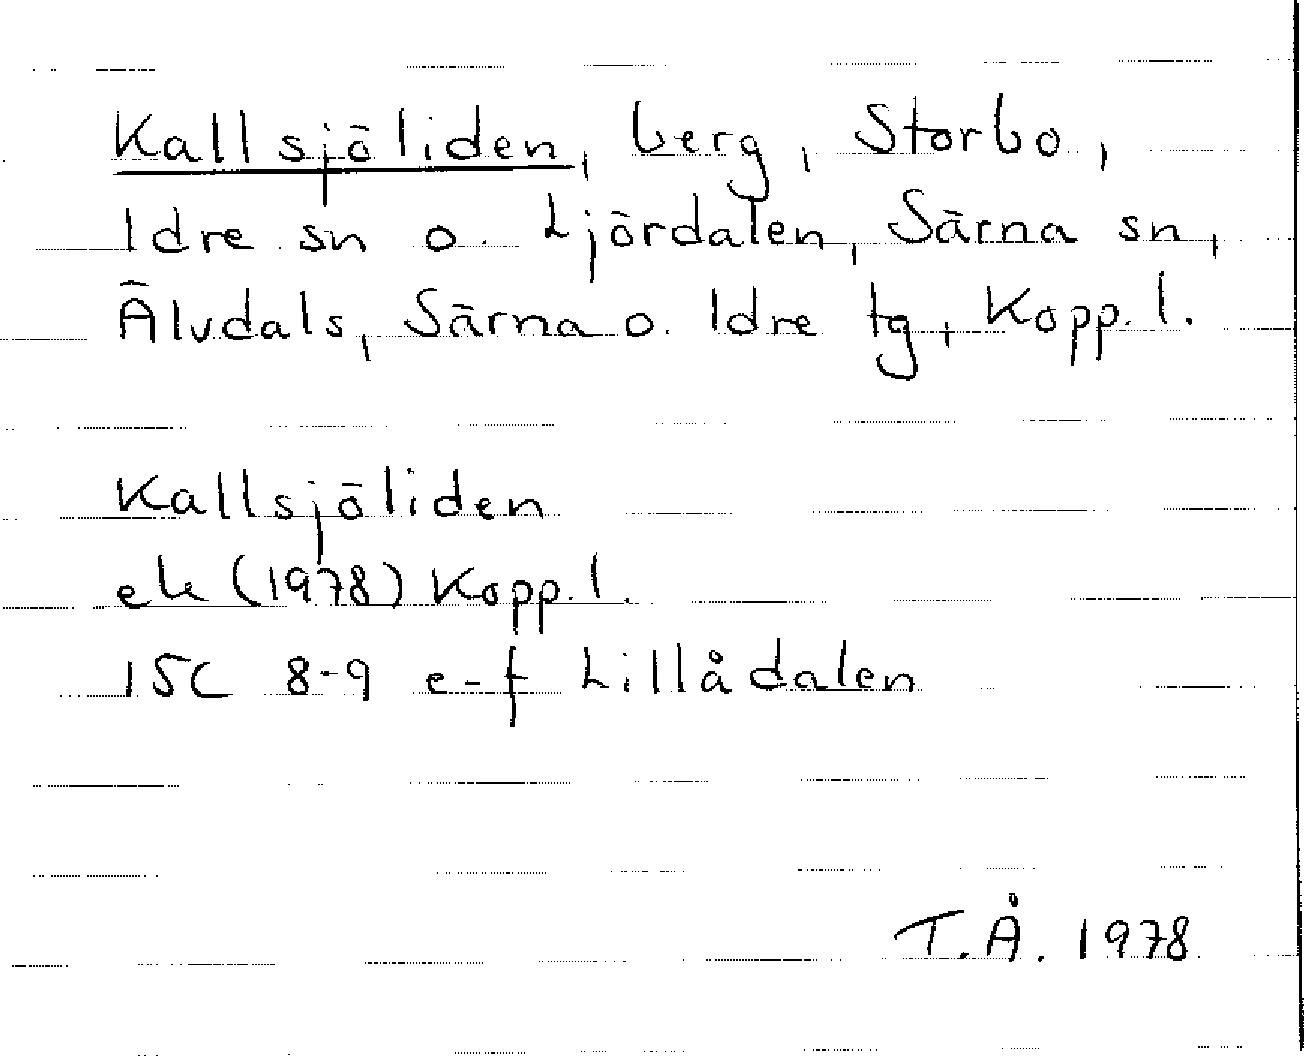 Kallsjöliden, berg, Storbo,
Idre sn o. Ljördalen, Särna sn,
Älvdals, Särna o. Idre tg, Kopp. l.
Kallsjöliden
ek (1978) Kopp. l.
15C 8-9 e-f Lillådalen
T.Å. 1978